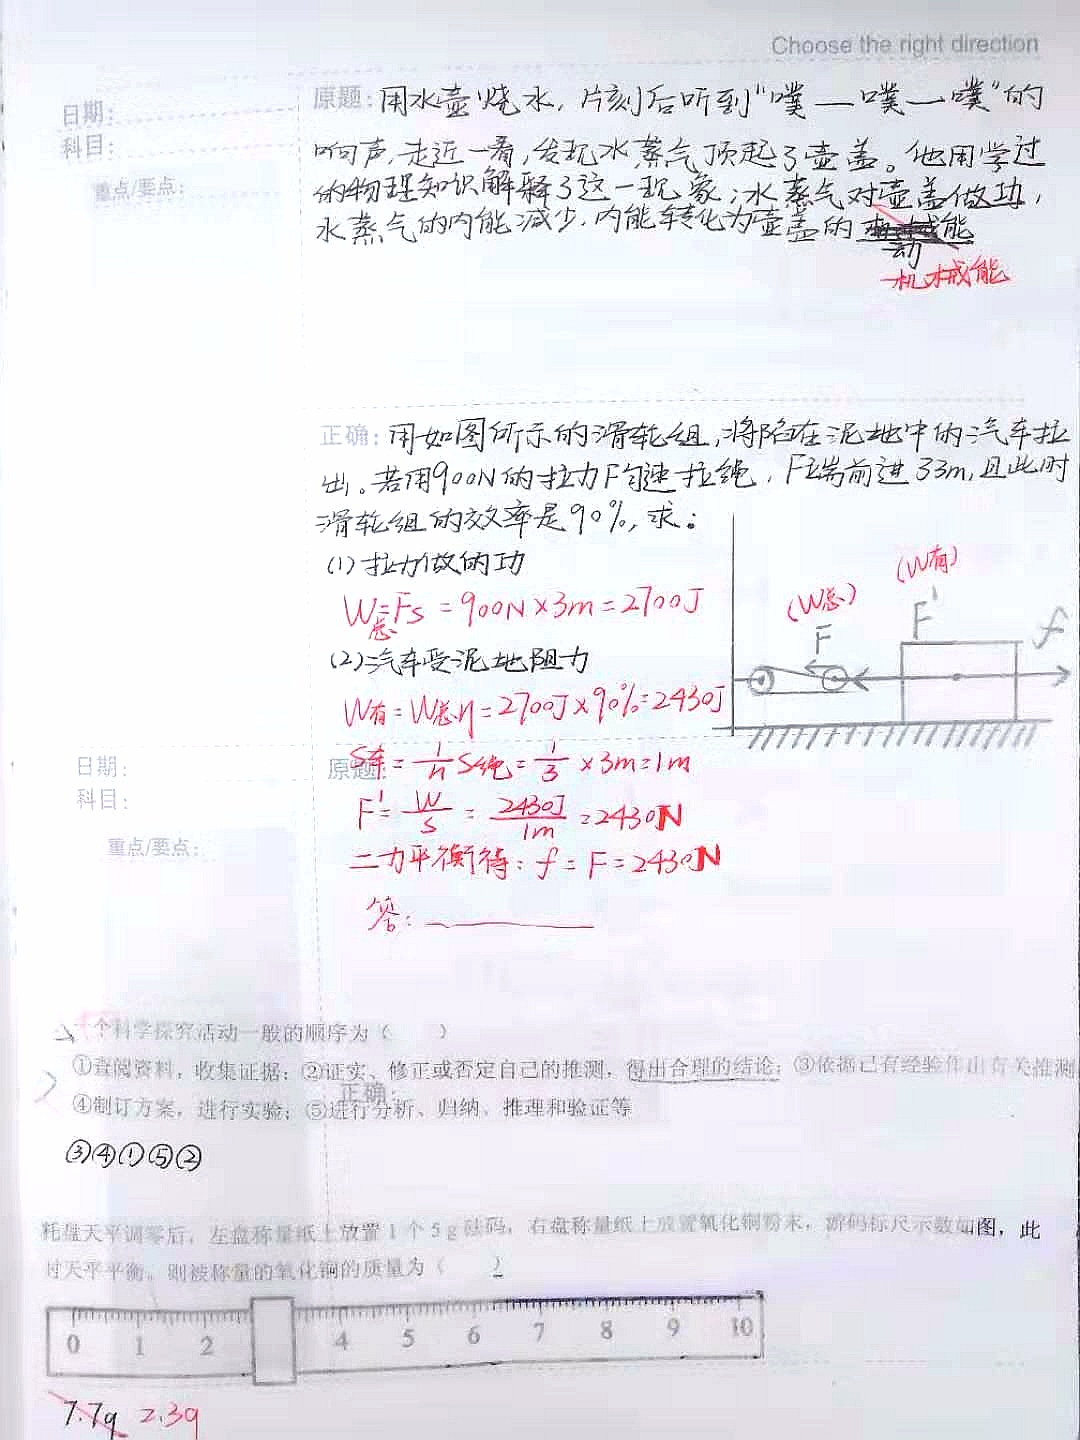 Choose the right direction
日期:
科目:
重点/要点:
原题: 用水壶烧水，片刻后听到“噗—噗—噗”的
响声,走近一看,发现水蒸气顶起了壶盖。他用学过
的物理知识解释了这一现象;水蒸气对壶盖做功,
水蒸气的内能减少,内能转化为壶盖的
能
动
机械能
正确: 用如图所示的滑轮组,将陷在泥地中的汽车拉
出。若用900N的拉力F匀速拉绳,F端前进33m,且此时
滑轮组的效率是90%,求:
(1)拉力做的功
W总=Fs=900N×3m=2700J
(2)汽车受泥地阻力
W有=W总η=2700J×90%=2430J
S车=1/n S绳=1/3×3m=1m
F'=W/S=2430J/1m=2430N
二力平衡得:f=F=2430N
答:
(W总)
(W有)
F
F'
f
日期:
科目:
重点/要点:
原题:
个科学探究活动一般的顺序为( )
①查阅资料，收集证据；②证实、修正或否定自己的推测，得出合理的结论；③依据已有经验作出有关推测
④制订方案，进行实验；⑤进行分析、归纳、推理和验证等
正确:
③④①⑤②
托盘天平调零后，左盘称量纸上放置1个5g砝码，右盘称量纸上放置氧化铜粉末，游码标尺示数如图，此
时天平平衡。则被称量的氧化铜的质量为( )
0 1 2 4 5 6 7 8 9 10
7.7g 2.3g